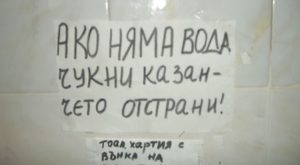 АКО НЯМА ВОДА
ЧУКНИ КАЗАН-
ЧЕТО ОТСТРАНИ!
ТОАЛ. ХАРТИЯ С
ВЪНКА НА